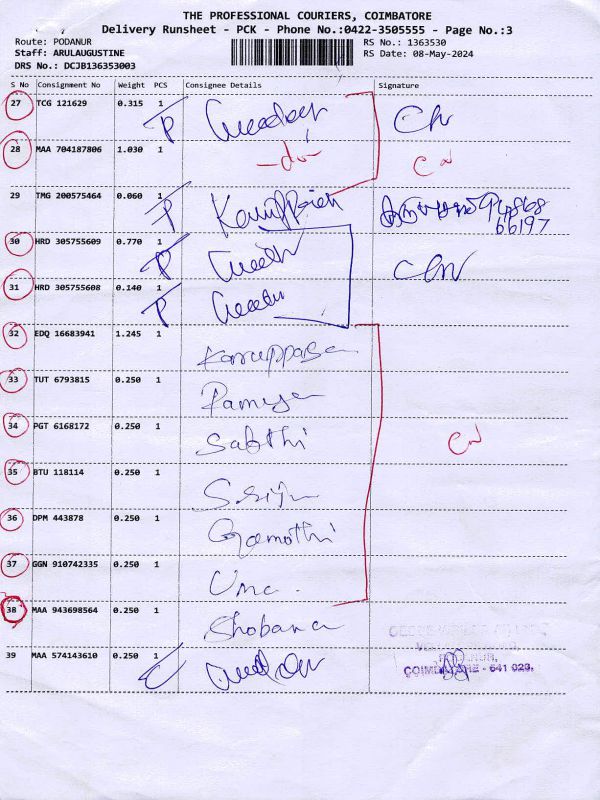 THE PROFESSIONAL COURIERS, COIMBATORE
Delivery Runsheet - PCK - Phone No.:0422-3505555 - Page No.:3
Route: PODANUR RS No.: 1363530
Staff: ARULAUGUSTINE RS Date: 08-May-2024
DRS No.: DCJB136353003
S No Consignment No Weight PCS Consignee Details Signature
27 TCG 121629 0.315 1 P
28 MAA 704187806 1.030 1 -do-
29 TMG 200575464 0.060 1 P 66197
30 HRD 305755609 0.770 1 P
31 HRD 305755608 0.140 1 P
32 EDQ 16683941 1.245 1
33 TUT 6793815 0.250 1 Ramya
34 PGT 6168172 0.250 1 Sakthi
35 BTU 118114 0.250 1
36 DPM 443878 0.250 1
37 GGN 910742335 0.250 1 Uma
38 MAA 943698564 0.250 1 Shobana
39 MAA 574143610 0.250 1
COIMBATORE - 641 023.